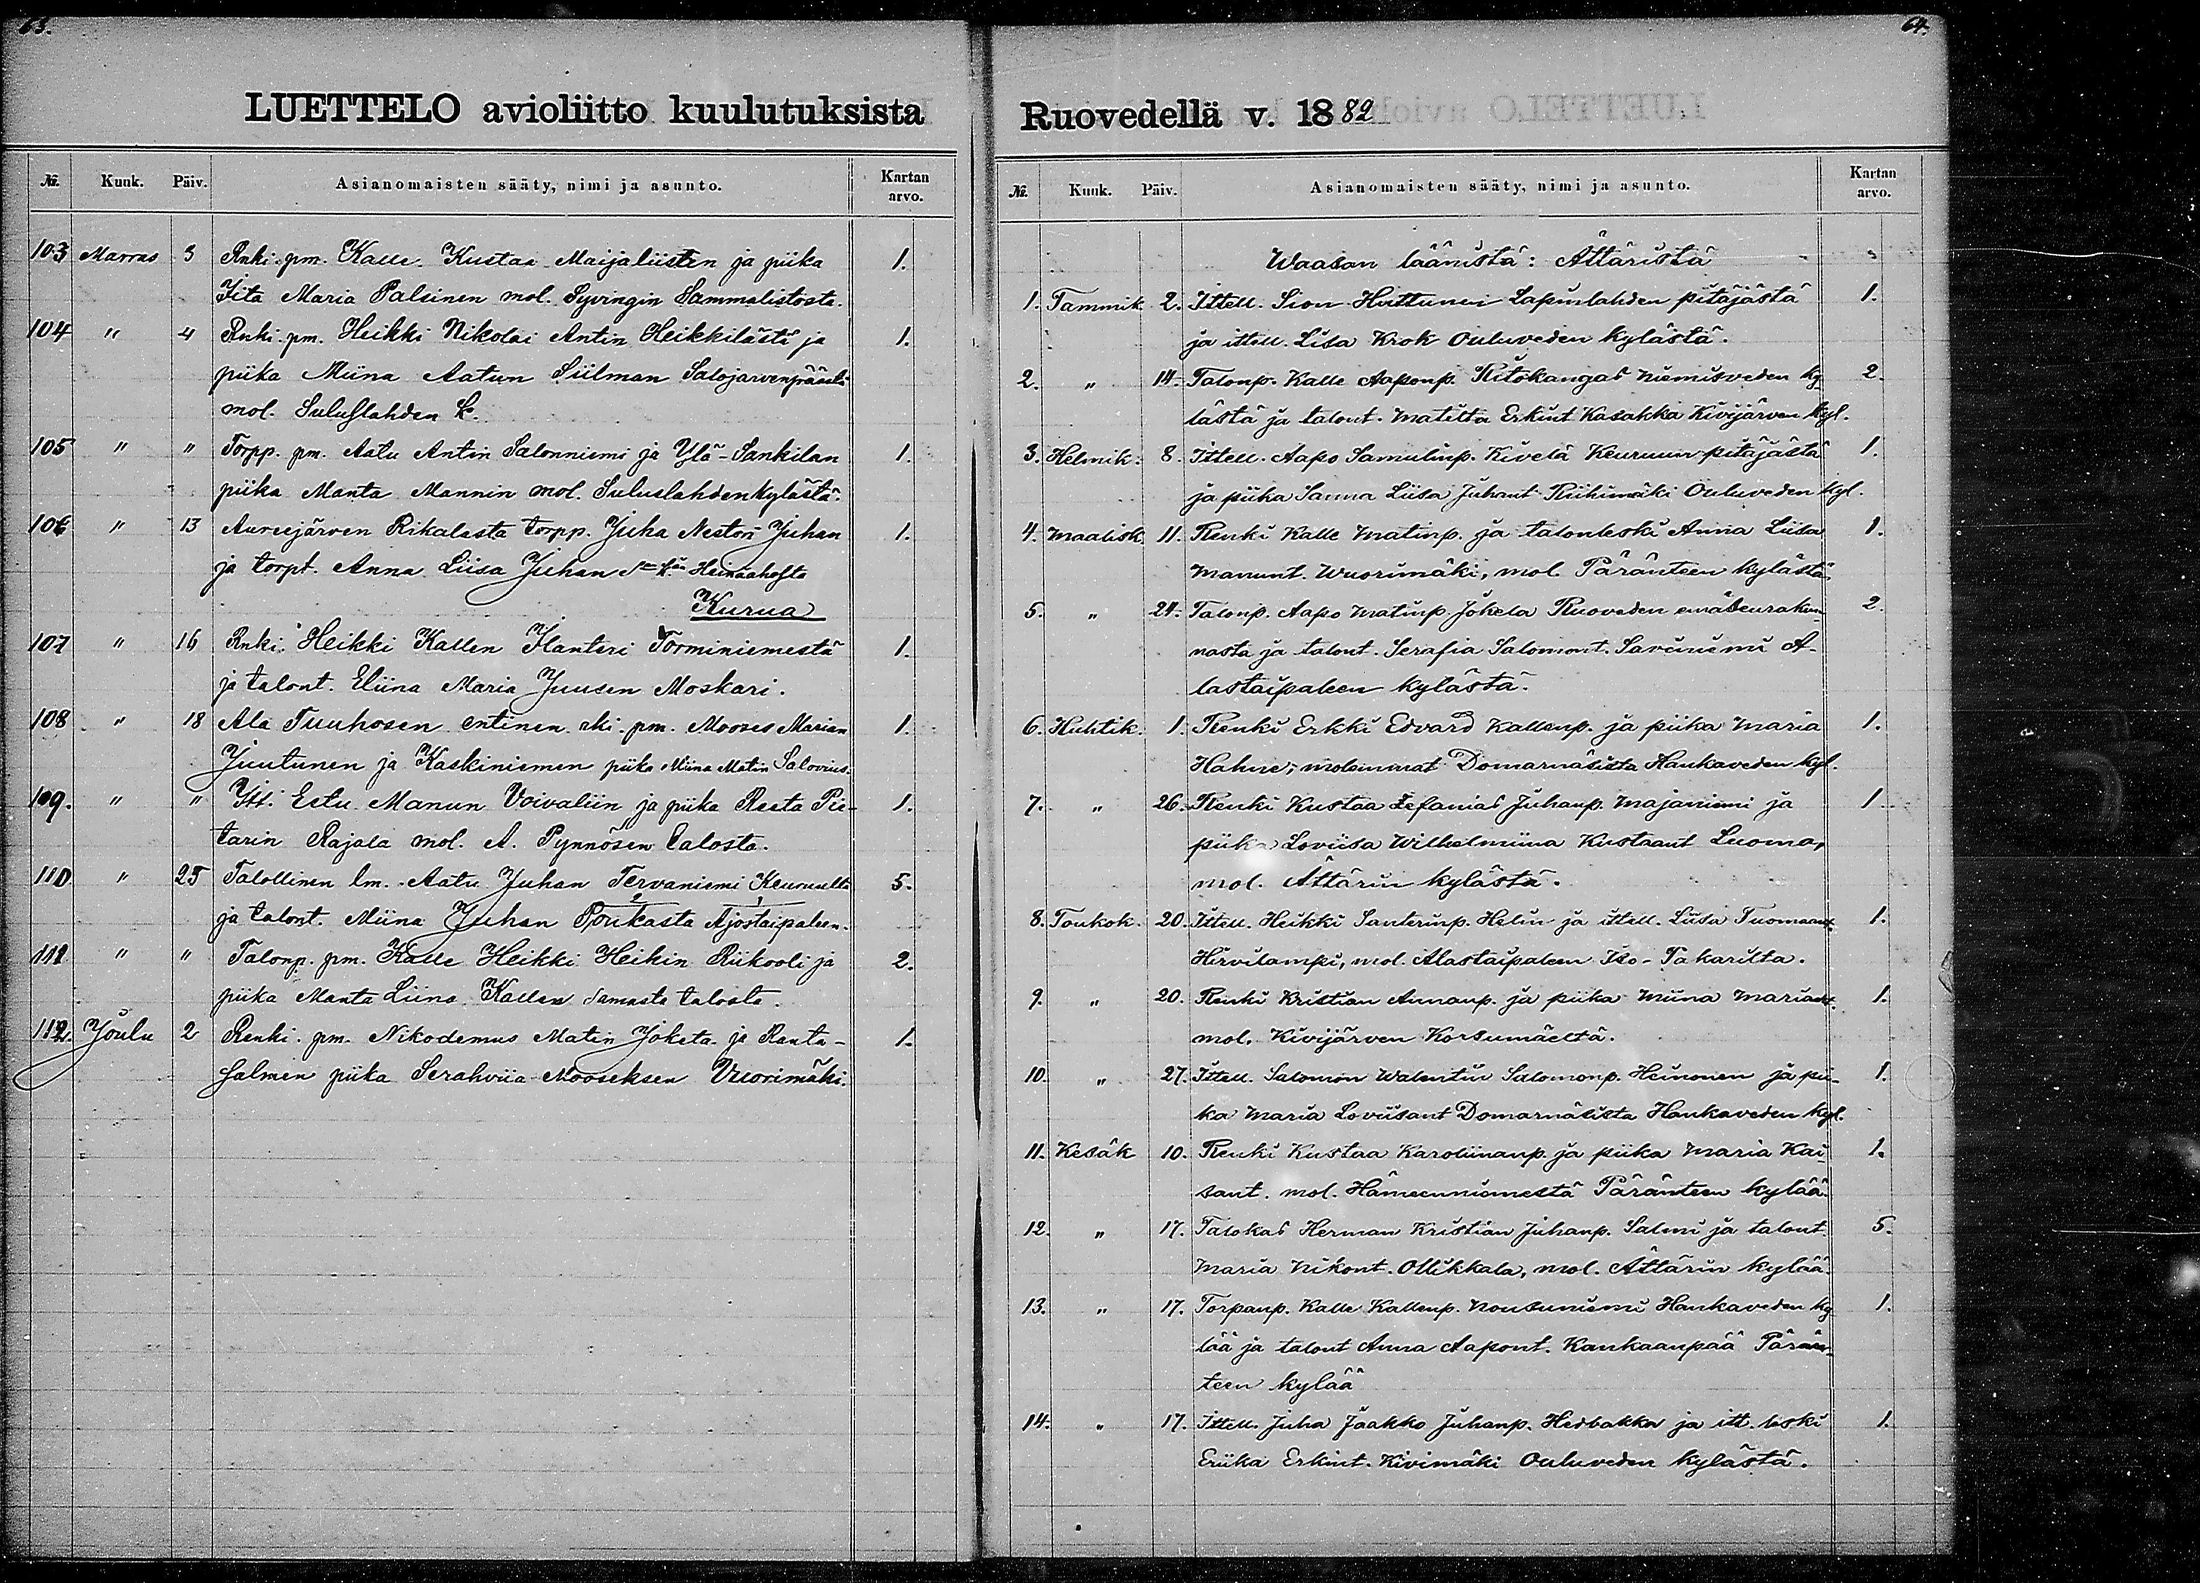 63.
LUETTELO avioliitto kuulutuksista
№. Kuuk. Päiv. Asianomaisten sääty, nimi ja asunto. Kartan arvo.
103 Marras 3 Rnki. pm. Kalle Kustaa Maijaliisten ja piika 1.
Iita Maria Palsinen mol. Syvingin Sammalistosta.
104 " 4 Rnki. pm. Heikki Nikolai Antin Heikkilästä ja 1.
piika Miina Aatun Siilman Salojarvenpäästä
mol. Suluslahden k.
105 " " Torpp. pm. Aatu Antin Salonniemi ja Ylä-Sankilan 1.
piika Manta Mannin mol. Suluslahdenkylästä.
106 " 13 Aureejärven Rikalasta torpp. Juha Nestori Juhan 1.
ja torpt. Anna Liisa Juhan Heinaahosta
Kurua
107 " 16 Rnki. Heikki Kallen Ilanteri Torminiemestä 1.
ja talont. Eliina Maria Juusen Moskari.
108 " 18 Ala Tuuhosen entinen rki. pm. Mooses Marian 1.
Juutunen ja Kaskiniemen piika Miina Matin Salovius.
109. " " Itt. Eetu Manun Voivaliin ja piika Reeta Pie- 1.
tarin Rajala mol. A. Pynnösen talosta.
110 " 25 Talollinen lm. Aatu Juhan Tervaniemi Keuruulta 5.
ja talont. Miina Juhan Poukasta Ajostaipaleen.
111 " " Talonp. pm. Kalle Heikki Heikin Riikooli ja 2.
piika Manta Liina Kallen samasta talosta.
112. Joulu 2 Renki. pm. Nikodemus Matin Joketa ja Ranta- 1.
salmen piika Serahviia Mooseksen Vuorimäki.
64.
Ruovedellä v. 1882
№. Kuuk. Päiv. Asianomaisten sääty, nimi ja asunto. Kartan arvo.
Waasan läänistä: Ättäristä
1. Tammik. 2. Ittell. Sion Huttunen Lapinlahden pitäjästä 1.
ja ittell. Liisa Krok Ouluveden kylästä.
2. " 14. Talonp. Kalle Aaponp. Ritokangas Niemisveden ky 2.
lästä ja talont. Matilta Erkint Kasahka Kivijärven kyl.
3. Helmik. 8. Ittell. Aapo Samulinp. Kivelä Keuruun pitäjästä 1.
ja piika Sanna Liisa Juhant Riihimäki Ouluveden kyl.
4. Maalisk. 11. Renki Kalle Matinp. ja talonleski Anna Liisa 1.
Manunt. Wuorimäki, mol. Päränteen kylästä.
5. " 24. Talonp. Aapo Matinp. Jokela Ruoveden emäseurakun- 2.
nasta ja talont. Serafia Salomont. Saviniemi A-
lastaipaleen kylästä.
6. Huhtik. 1. Renki Erkki Edvard Kallenp. ja piika Maria 1.
Hahne, molemmat Domarnäsista Hankaveden kyl.
7. " 26. Renki Kustaa Sefanias Juhanp. Majaniemi ja 1
piika Loviisa Wilhelmiina Kustaant Luoma,
mol. Ättärin kylästä.
8. Toukok. 20. Ittell. Heikki Santerinp. Helin ja ittell. Liisa Tuomaant. 1.
Hirvilampi, mol. Alastaipaleen Iso-Takarilta.
9. " 20. Renki Kristian Annanp. ja piika Miina Mariant. 1.
mol. Kivijärven Korsumäeltä.
10. " 27. Ittell. Salomon Walentin Salomonp. Heinonen ja pii- 1.
ka Maria Loviisant Domarnäsista Hankaveden kyl.
11. Kesäk 10. Renki Kustaa Karoliinanp. ja piika Maria Kai- 1.
sant. mol. Hämeenniemestä Päränteen kylää.
12. " 17. Talokas Herman Kristian Juhanp. Salmi ja talont. 5.
Maria Nikont. Ollikkala, mol. Ättärin kylää.
13. " 17. Torpanp. Kalle Kallenp. Nousuniemi Hankaveden ky 1.
lää ja talont Anna Aapont. Kankaanpää Pärän-
teen kylää
14. " 17. Ittell. Juha Jaakko Juhanp. Hedbakka ja itt. leski 1.
Eriika Erkint. Kivimäki Ouluveden kylästä.